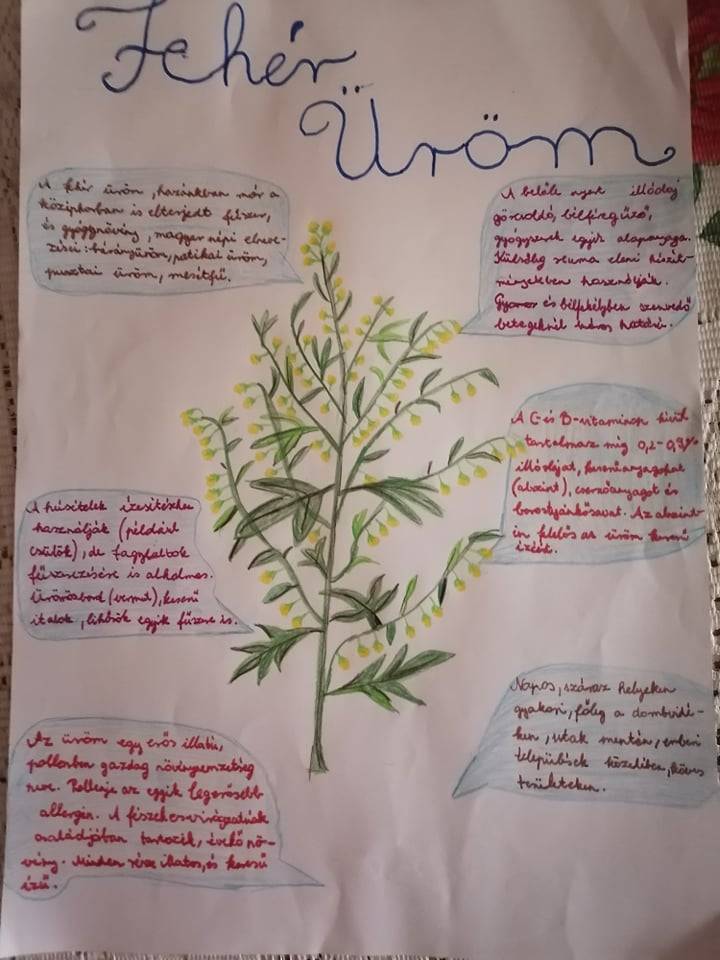 Fehér
Üröm
A fehér üröm, hazánkban már a
középkorban is elterjedt fűszer,
és gyógynövény, magyar népi elneve-
zései: bárányüröm, patikai üröm,
pusztai üröm, mesitfű.
A belőle nyert illóolaj
görcsoldó, bélféregűző,
gyógyszerek egyik alapanyaga.
Külsőleg reuma elleni készít-
ményekben használják.
Gyomor és bélfekélyben szenvedő
betegeknél káros hatású.
A C és B-vitaminon kívül
tartalmaz még 0,2-0,3%
illóolajat, keserűanyagokat
(abszint), cserzőanyagot és
borostyánkősavat. Az absint-
in felelős az üröm keserű
ízéért.
A húsételek ízesítéséhez
használják (például
csülök), de fagylaltok
fűszerezésére is alkalmas.
Ürörösbord (vermut), keserű
italok, likőrök egyik fűszere is.
Napos, száraz helyeken
gyakori, főleg a dombvidé-
ken, utak mentén, emberi
települések közelében, köves
területeken.
Az üröm egy erős illatú,
pollenban gazdag növénynemzetség
neve. Pollenje az egyik legerősebb
allergén. A fészkesvirágzatúak
családjában tartozik, évelő nö-
vény. Minden része illatos, és keserű
ízű.